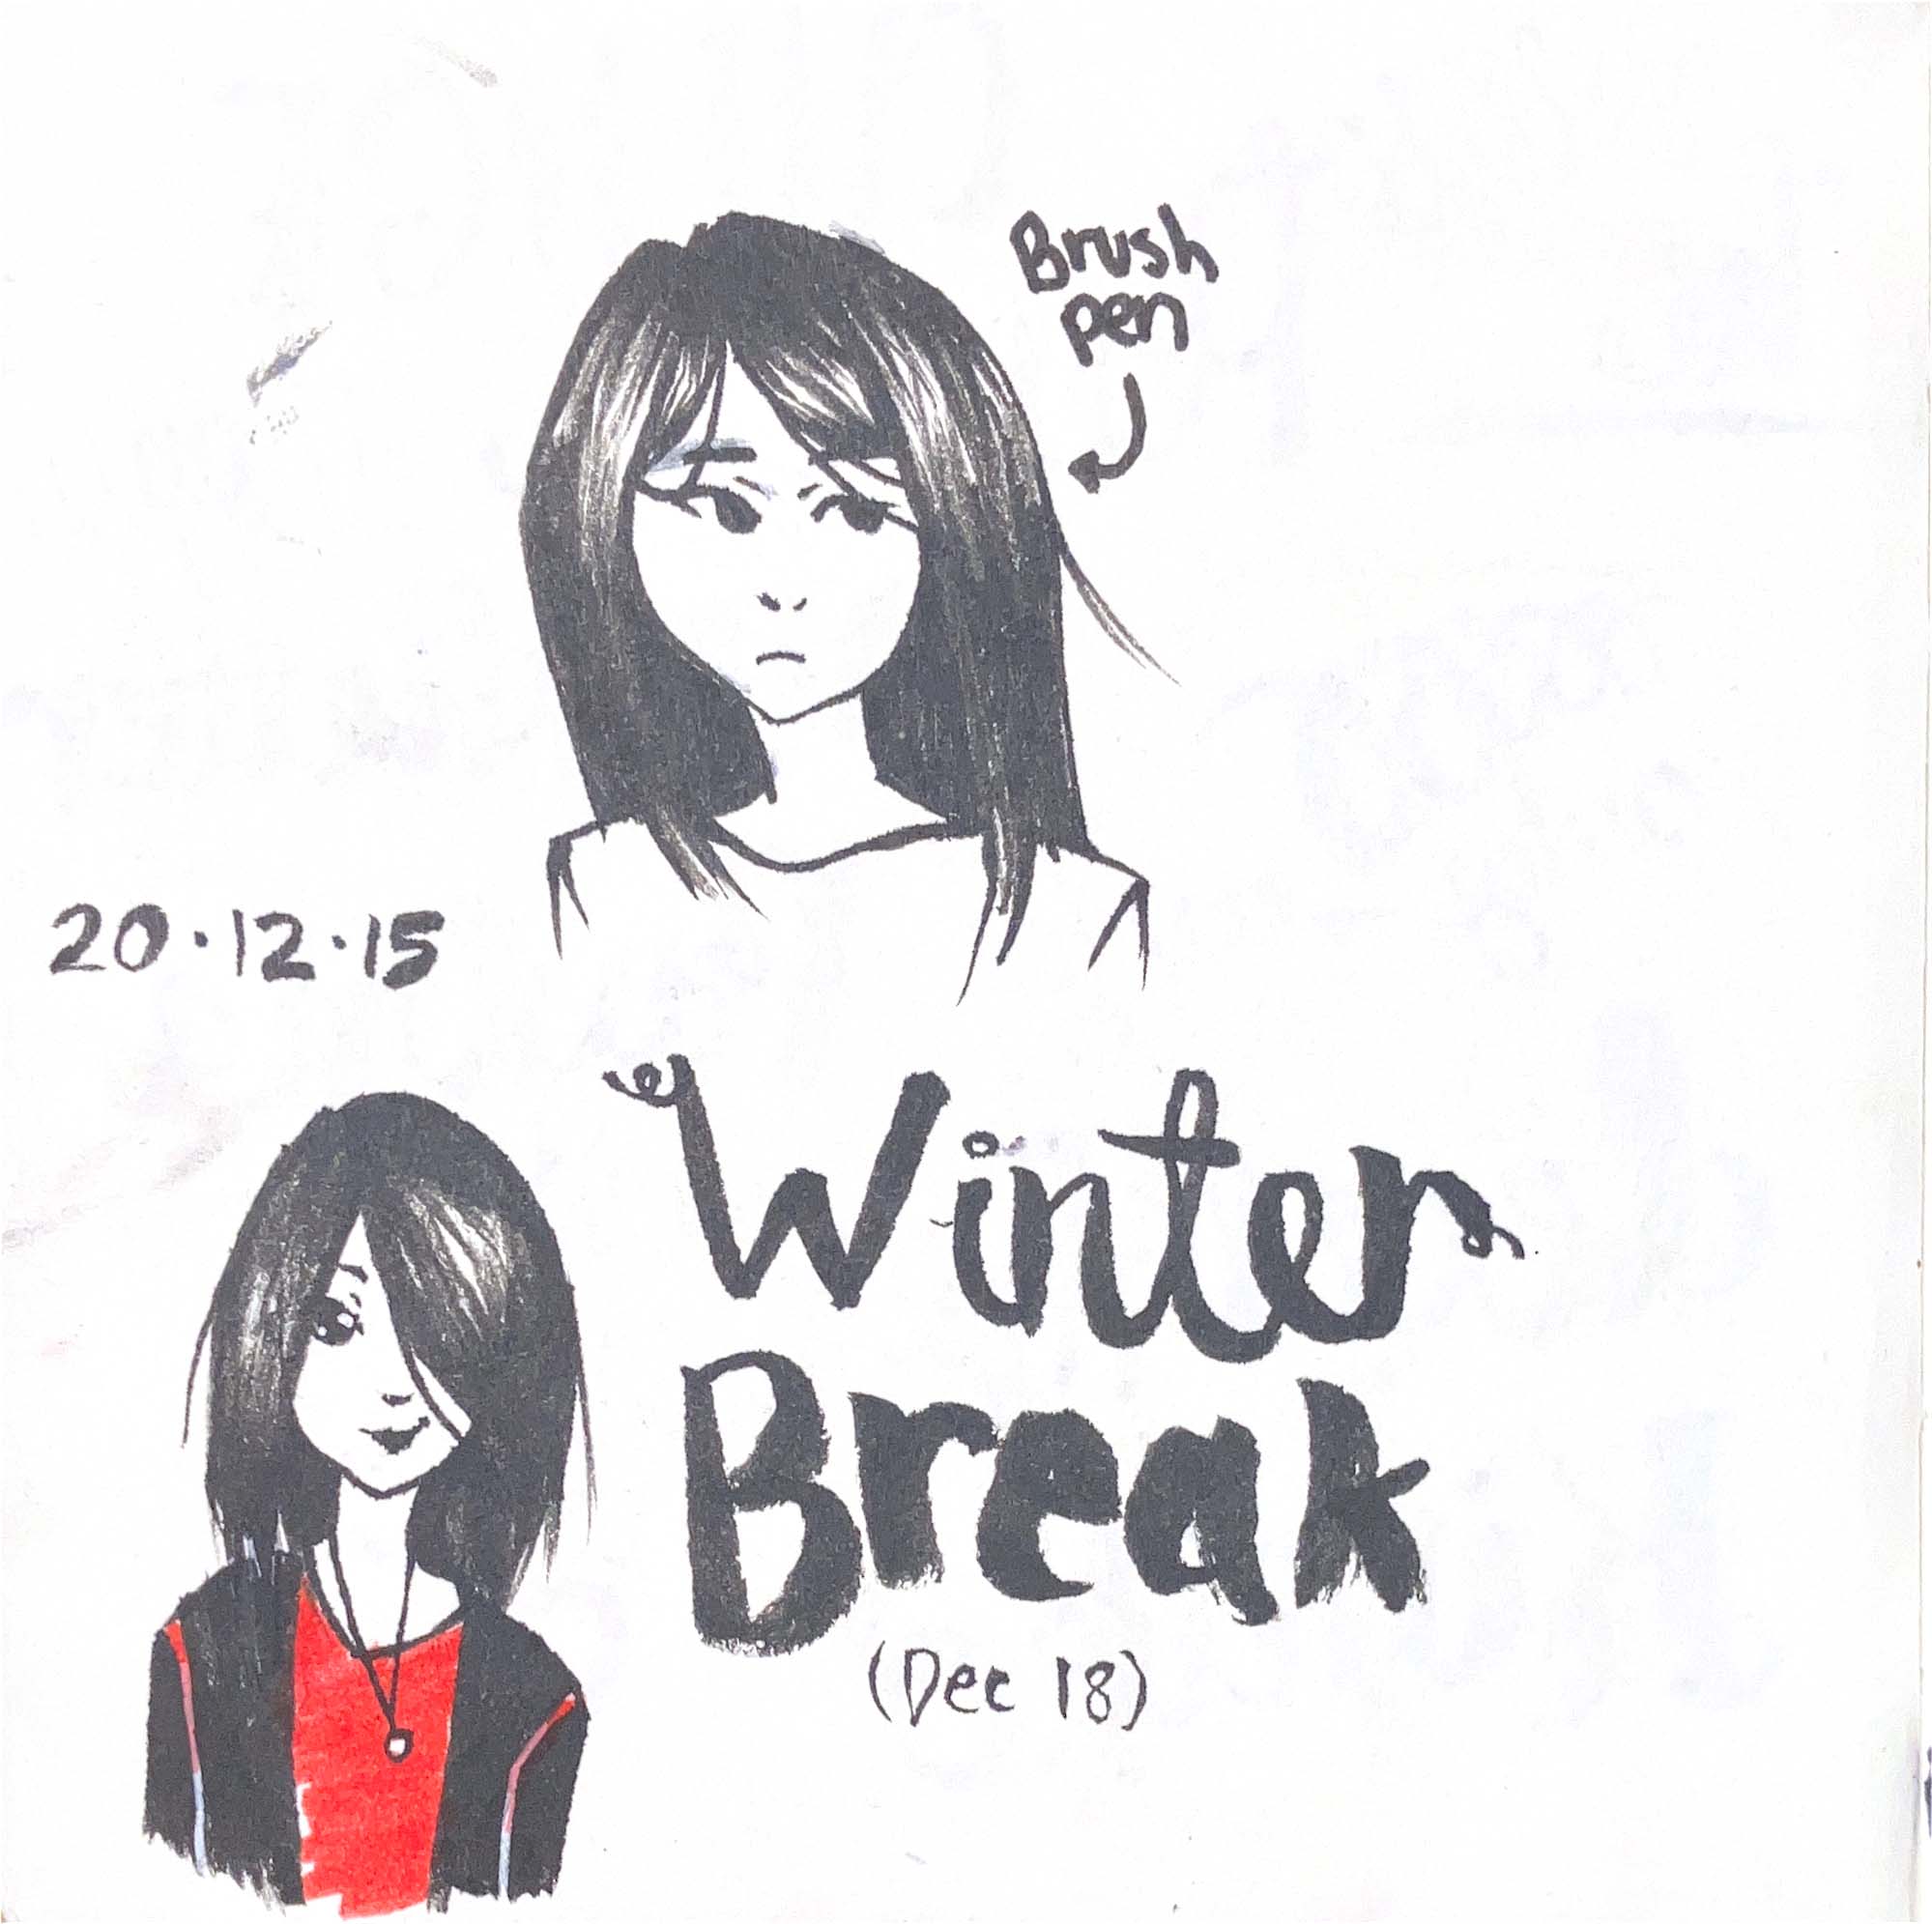 Brush
pen
20.12.15
Winter
Break
(Dec 18)